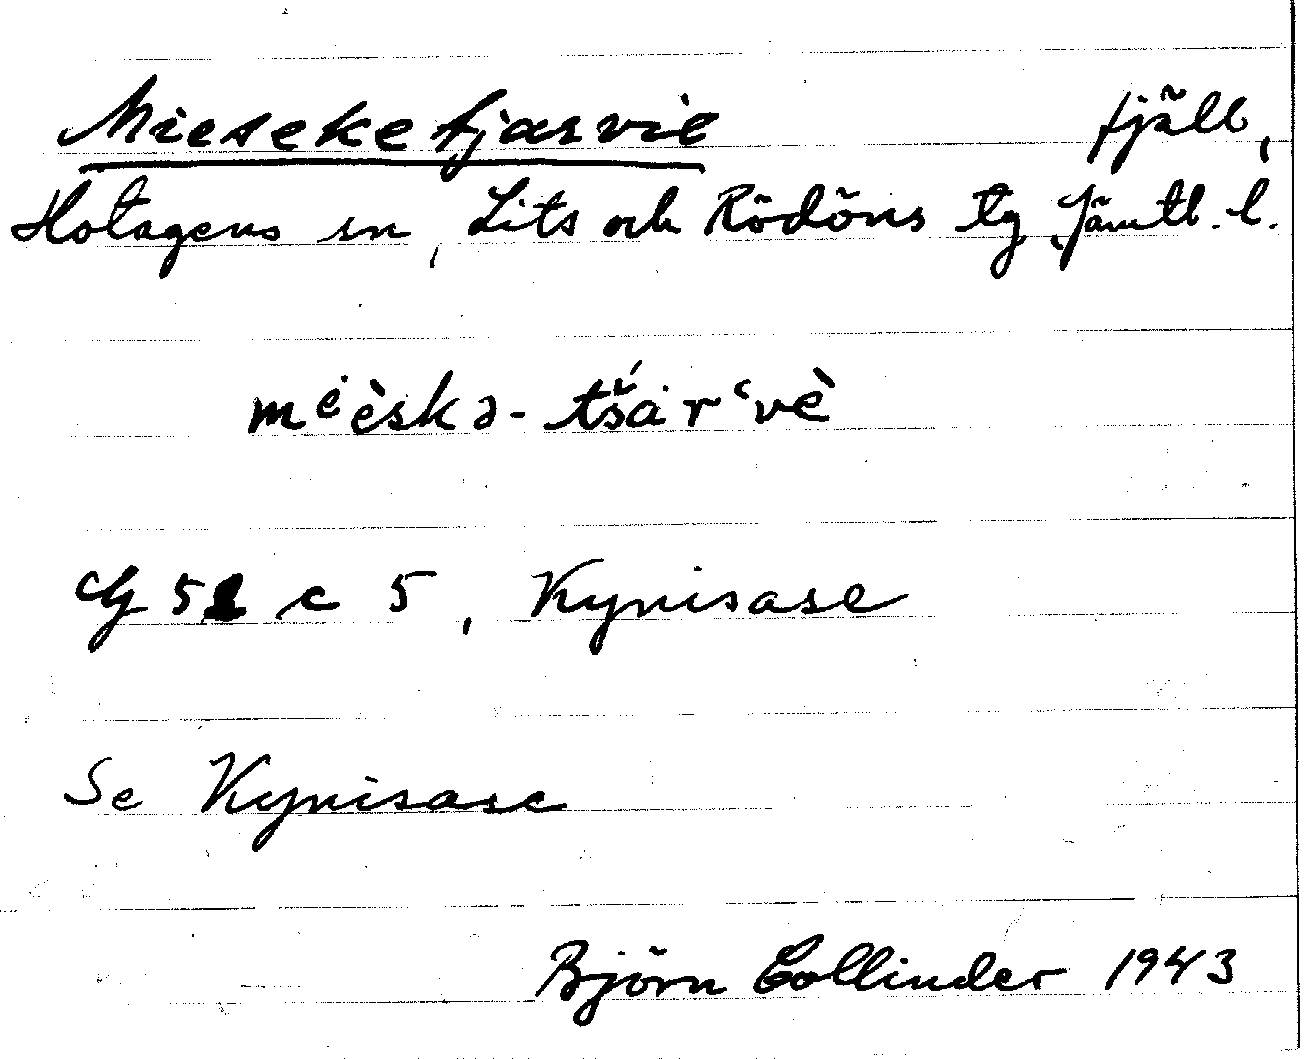 Mieseketjarvie fjäll,
Hotagens sn, Lits och Rödöns tg Jämtl. l.
mėèskə-tšár‘vè
Gg 51 c 5, Kynisase
Se Kynisase
Björn Collinder 1943